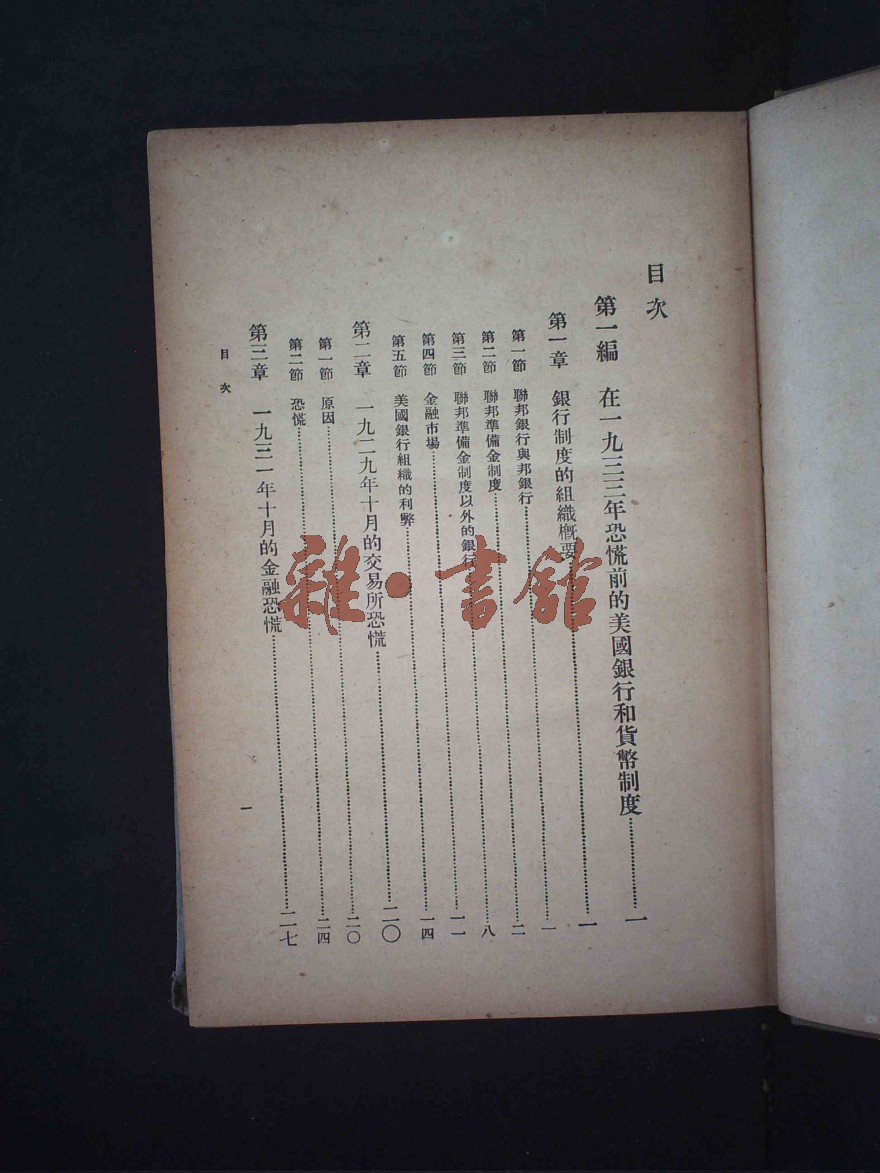 目次
第一編　在一九三三年恐慌前的美國銀行和貨幣制度……一
第一章　銀行制度的組織概要……一
第一節　聯邦銀行與邦銀行……一
第二節　聯邦準備金制度……二
第三節　聯邦準備金制度以外的銀行……八
第四節　金融市場……一一
第五節　美國銀行組織的利弊……一四
第二章　一九二九年十月的交易所恐慌……二〇
第一節　原因……二〇
第二節　恐慌……二四
第三章　一九三一年十月的金融恐慌……二七
目次
一
雜·書館